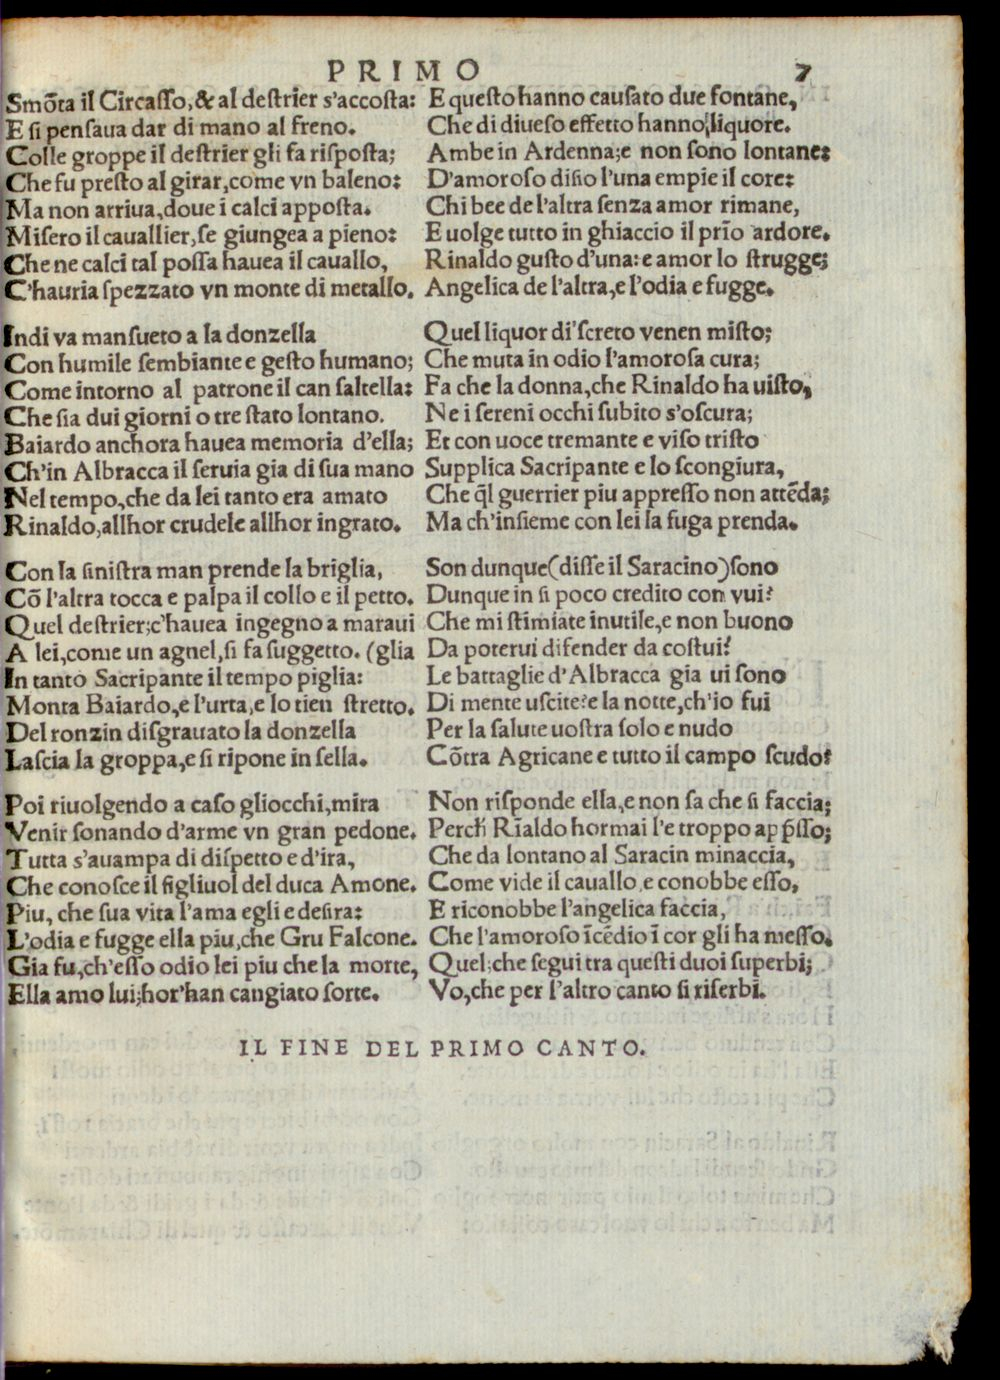 PRIMO 7
Smōta il Circasso, & al destrier s'accosta:
E si pensaua dar di mano al freno.
Colle groppe il destrier gli fa risposta;
Che fu presto al girar, come vn baleno:
Ma non arriua, doue i calci apposta.
Misero il cauallier, se giungea a pieno:
Che ne calci tal possa hauea il cauallo,
C'hauria spezzato vn monte di metallo.
Indi va mansueto a la donzella
Con humile sembiante e gesto humano;
Come intorno al patrone il can saltella:
Che sia dui giorni o tre stato lontano.
Baiardo anchora hauea memoria d'ella;
Ch'in Albracca il seruia gia di sua mano
Nel tempo, che da lei tanto era amato
Rinaldo, allhor crudele allhor ingrato.
Con la sinistra man prende la briglia,
Cō l'altra tocca e palpa il collo e il petto.
Quel destrier; c'hauea ingegno a maraui
A lei, come un agnel, si fa suggetto. (glia
In tanto Sacripante il tempo piglia:
Monta Baiardo, e l'urta, e lo tien stretto.
Del ronzin disgrauato la donzella
Lascia la groppa, e si ripone in sella.
Poi riuolgendo a caso gliocchi, mira
Venir sonando d'arme vn gran pedone.
Tutta s'auampa di dispetto e d'ira,
Che conosce il figliuol del duca Amone.
Piu, che sua vita l'ama egli e desira:
L'odia e fugge ella piu, che Gru Falcone.
Gia fu, ch'esso odio lei piu che la morte,
Ella amo lui; hor'han cangiato sorte.
E questo hanno causato due fontane,
Che di diueso effetto hanno liquore.
Ambe in Ardenna; e non sono lontane:
D'amoroso disio l'una empie il core:
Chi bee de l'altra senza amor rimane,
E uolge tutto in ghiaccio il prīo ardore.
Rinaldo gusto d'una: e amor lo strugge;
Angelica de l'altra, e l'odia e fugge.
Quel liquor di screto venen misto;
Che muta in odio l'amorosa cura;
Fa che la donna, che Rinaldo ha uisto,
Ne i sereni occhi subito s'oscura;
Et con uoce tremante e viso tristo
Supplica Sacripante e lo scongiura,
Che q̄l guerrier piu appresso non attēda;
Ma ch'insieme con lei la fuga prenda.
Son dunque (disse il Saracino) sono
Dunque in si poco credito con vui?
Che mi stimiate inutile, e non buono
Da poterui difender da costui?
Le battaglie d'Albracca gia ui sono
Di mente uscite? e la notte, ch'io fui
Per la salute uostra solo e nudo
Cōtra Agricane e tutto il campo scudo?
Non risponde ella, e non sa che si faccia;
Perch̄ Rīaldo hormai l'e troppo app̄sso;
Che da lontano al Saracin minaccia,
Come vide il cauallo e conobbe esso,
E riconobbe l'angelica faccia,
Che l'amoroso īcēdio ī cor gli ha messo.
Quel; che segui tra questi duoi superbi;
Vo, che per l'altro canto si riserbi.
IL FINE DEL PRIMO CANTO.